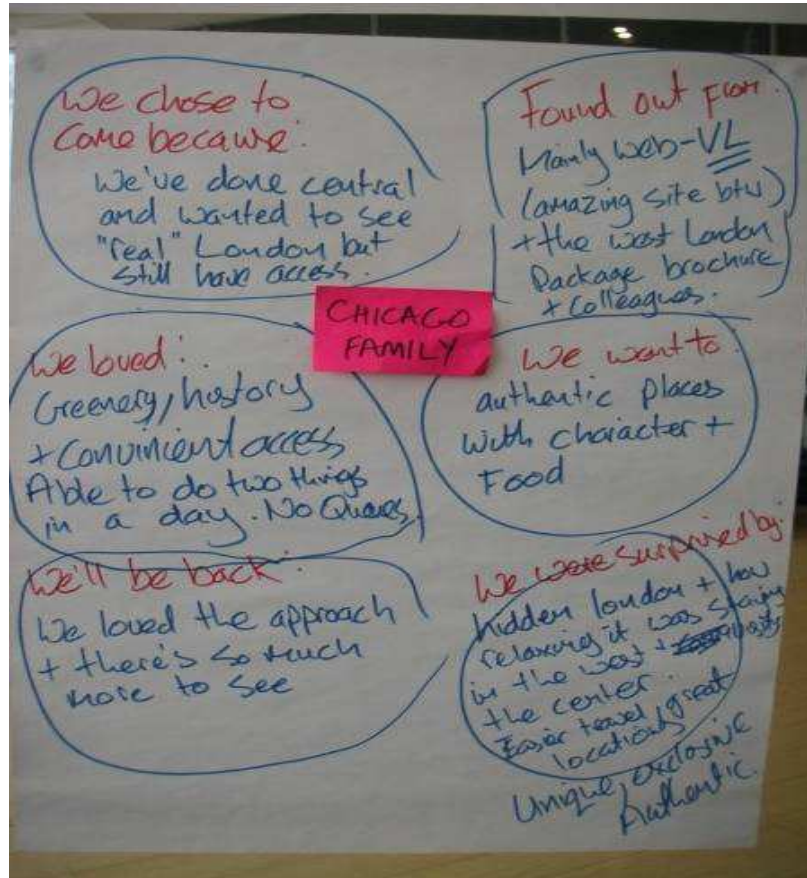 We chose to
come because:
We've done central
and wanted to see
"real" London but
still have access.
Found out from:
Mainly web-VL
(amazing site btw)
+ the west London
Package brochure
+ Colleagues.
CHICAGO
FAMILY
We loved:
Greenery, history
+ Convinient access
Able to do two things
in a day. No Queues
We want to:
authentic places
with character +
Food
We'll be back:
We loved the approach
+ there's so much
more to see
We were surprised by:
hidden london + how
relaxing it was staying
in the west +
the center.
Easier travel, great
locations
Unique, exclusive
Authentic.